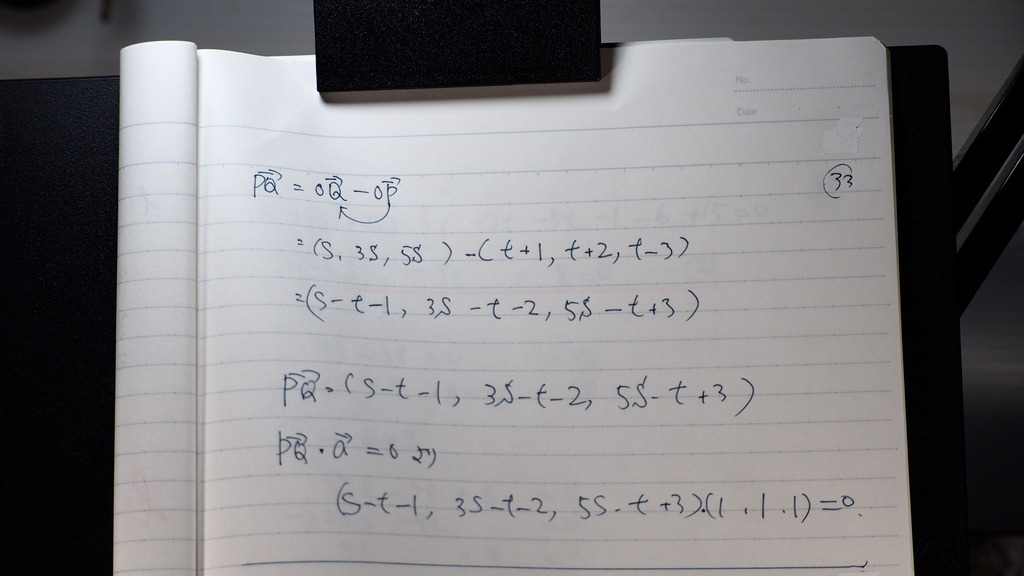 No.
Date
㉝
PQ⃗ = OQ⃗ - OP⃗
= (S, 3S, 5S) - (t+1, t+2, t-3)
= (S-t-1, 3S-t-2, 5S-t+3)
PQ⃗ = (S-t-1, 3S-t-2, 5S-t+3)
PQ⃗・a⃗ = 0 より
(S-t-1, 3S-t-2, 5S-t+3)・(1, 1, 1) = 0.